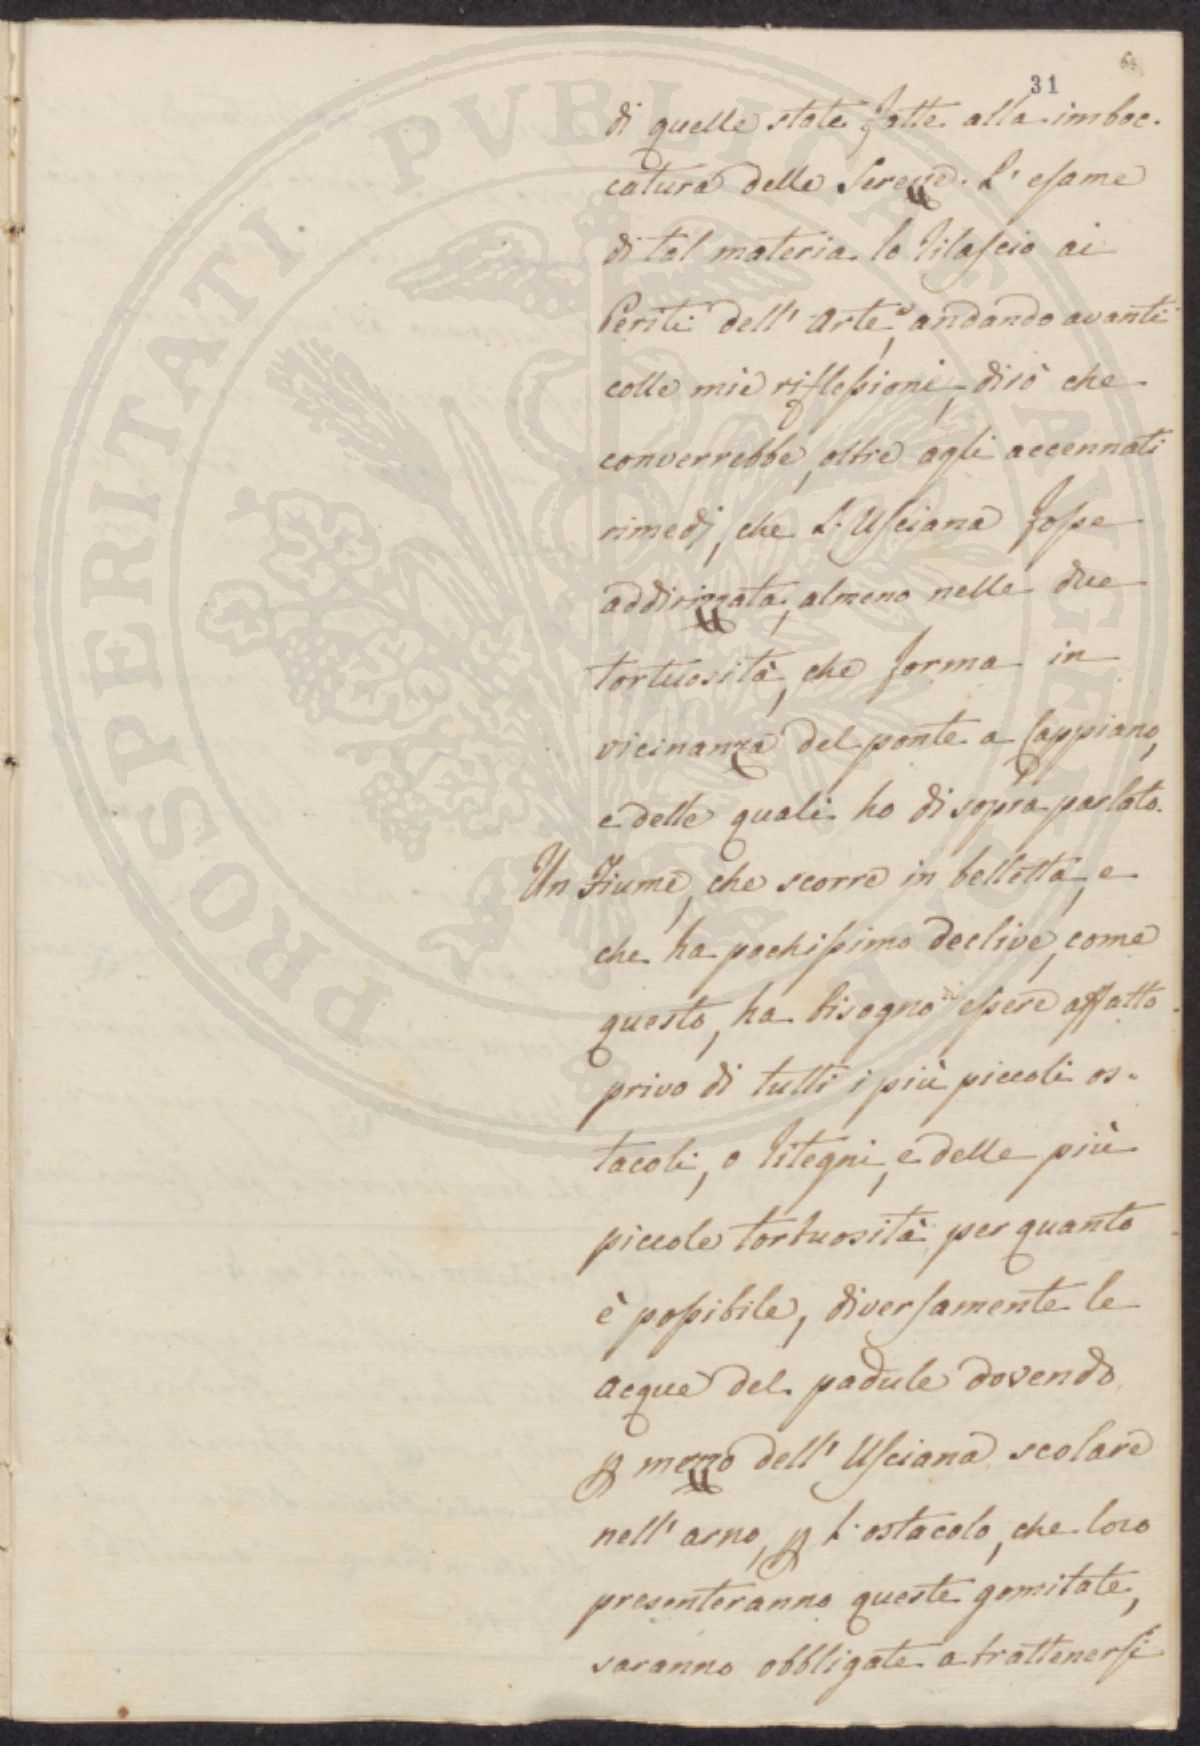 64
31
di quelle state fatte alla imboc-
catura delle Serezze. L'esame
di tal materia lo rilascio ai
Periti dell'Arte, andando avanti
colle mie riflessioni, dirò che
converrebbe, oltre agli accennati
rimedj, che L'Usciana fosse
addirizzata, almeno nelle due
tortuosità, che forma in
vicinanza del ponte a Cappiano,
e delle quali ho di sopra parlato.
Un Fiume, che scorre in belletta, e
che ha pochissimo declive, come
questo, ha bisogno di essere affatto
privo di tutti i più piccoli os-
tacoli, o ritegni, e delle più
piccole tortuosità per quanto
è possibile, diversamente le
acque del padule dovendo
p mezzo dell'Usciana scolare
nell'arno, p L'ostacolo, che loro
presenteranno queste gomitate,
saranno obbligate a trattenersi
PROSPERITATI PVBLICAE AVGENDAE